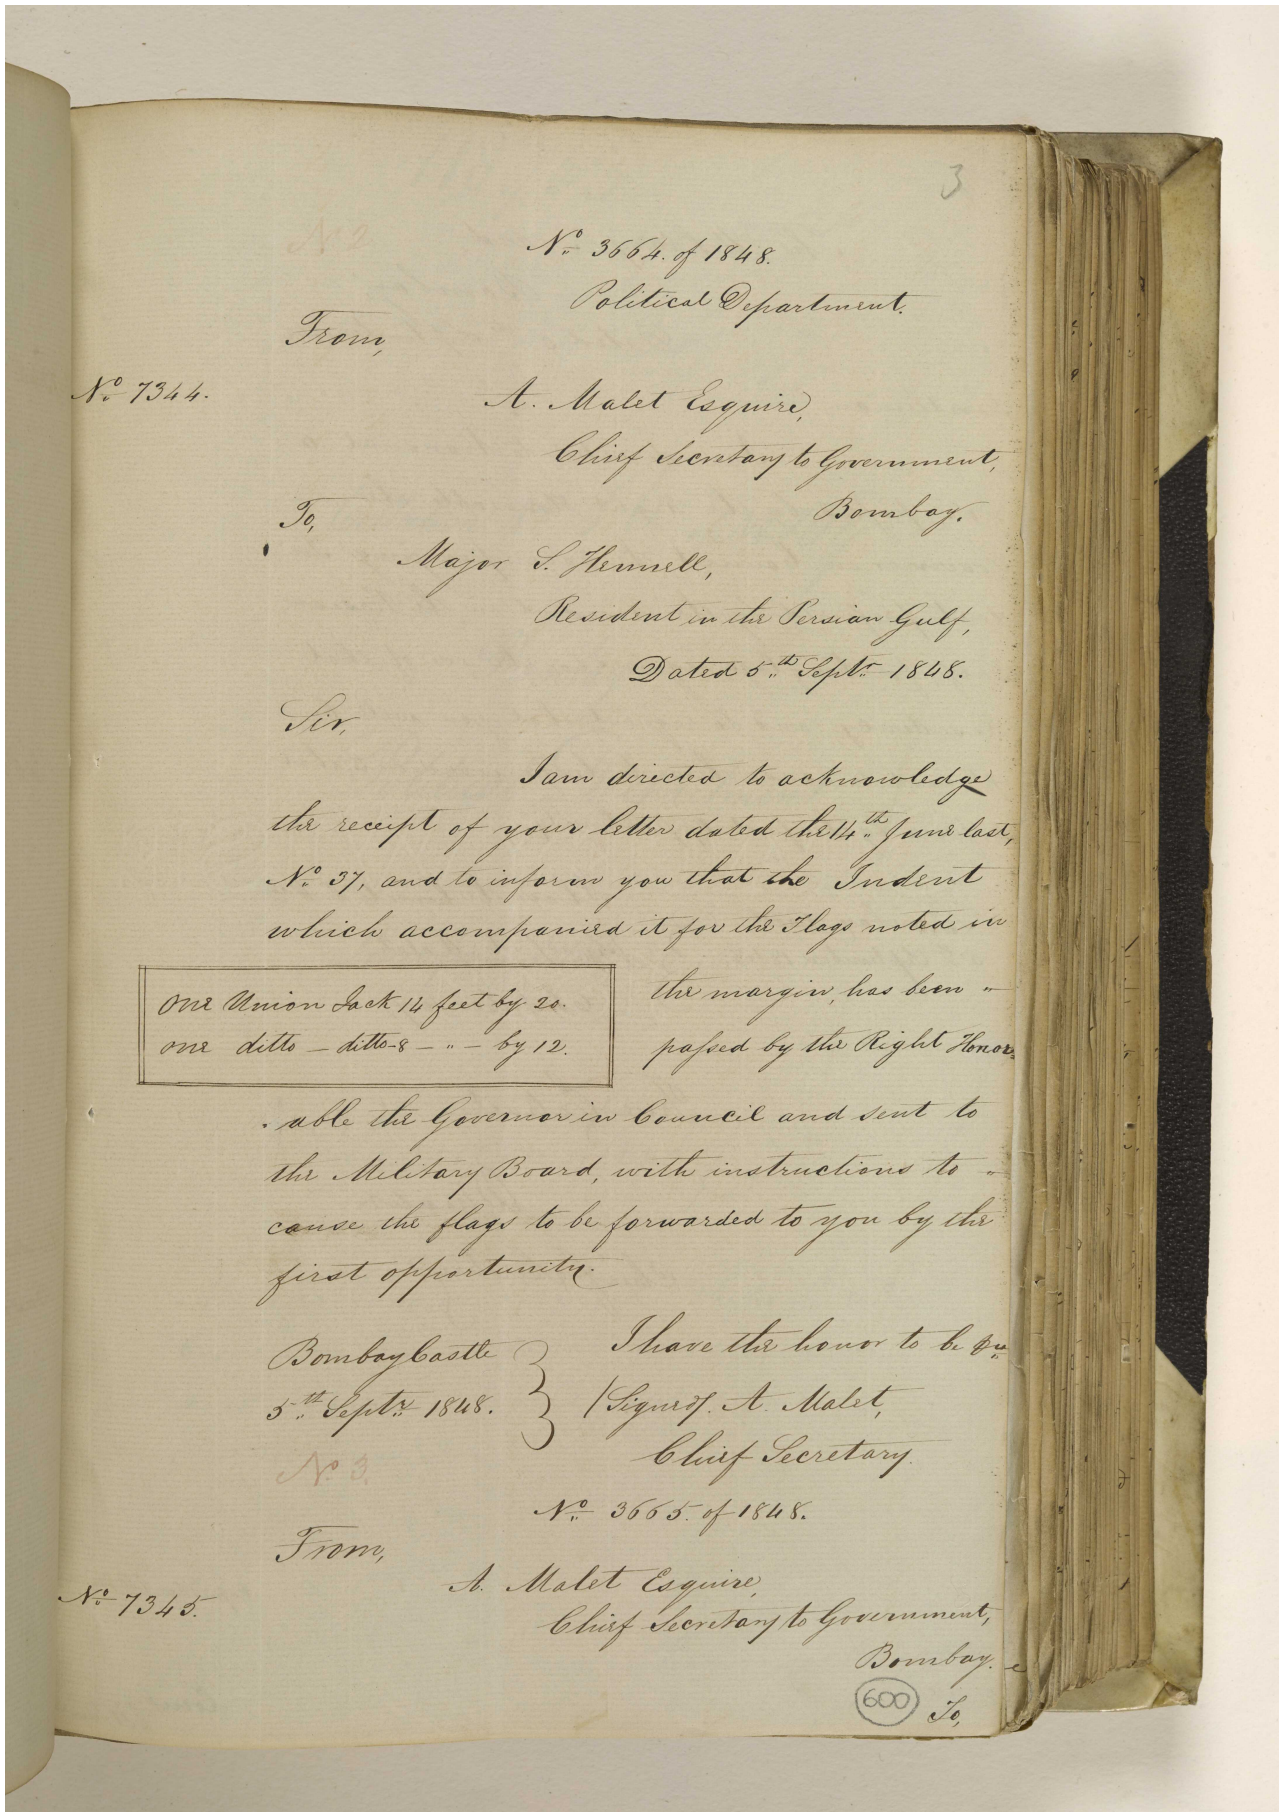 3
No 2
No 3664. of 1848.
Political Department.
From,
No 7344.
A. Malet Esquire,
Chief Secretary to Government,
Bombay.
To,
Major S. Hennell,
Resident in the Persian Gulf,
Dated 5th Septr 1848.
Sir,
I am directed to acknowledge
the receipt of your letter dated the 14th June last,
No 37, and to inform you that the Indent
which accompanied it for the Flags noted in
One Union Jack 14 feet by 20.
One ditto - ditto - 8 - " - by 12.
the margin, has been "
passed by the Right Honor=
able the Governor in Council and sent to
the Military Board, with instructions to "
cause the flags to be forwarded to you by the
first opportunity.
I have the honor to be &ca
Bombay Castle
5th Septr 1848.
/Signed/. A. Malet,
Chief Secretary.
No 3.
No 3665. of 1848.
From,
No 7345.
A. Malet Esquire,
Chief Secretary to Government,
Bombay.
600
To,